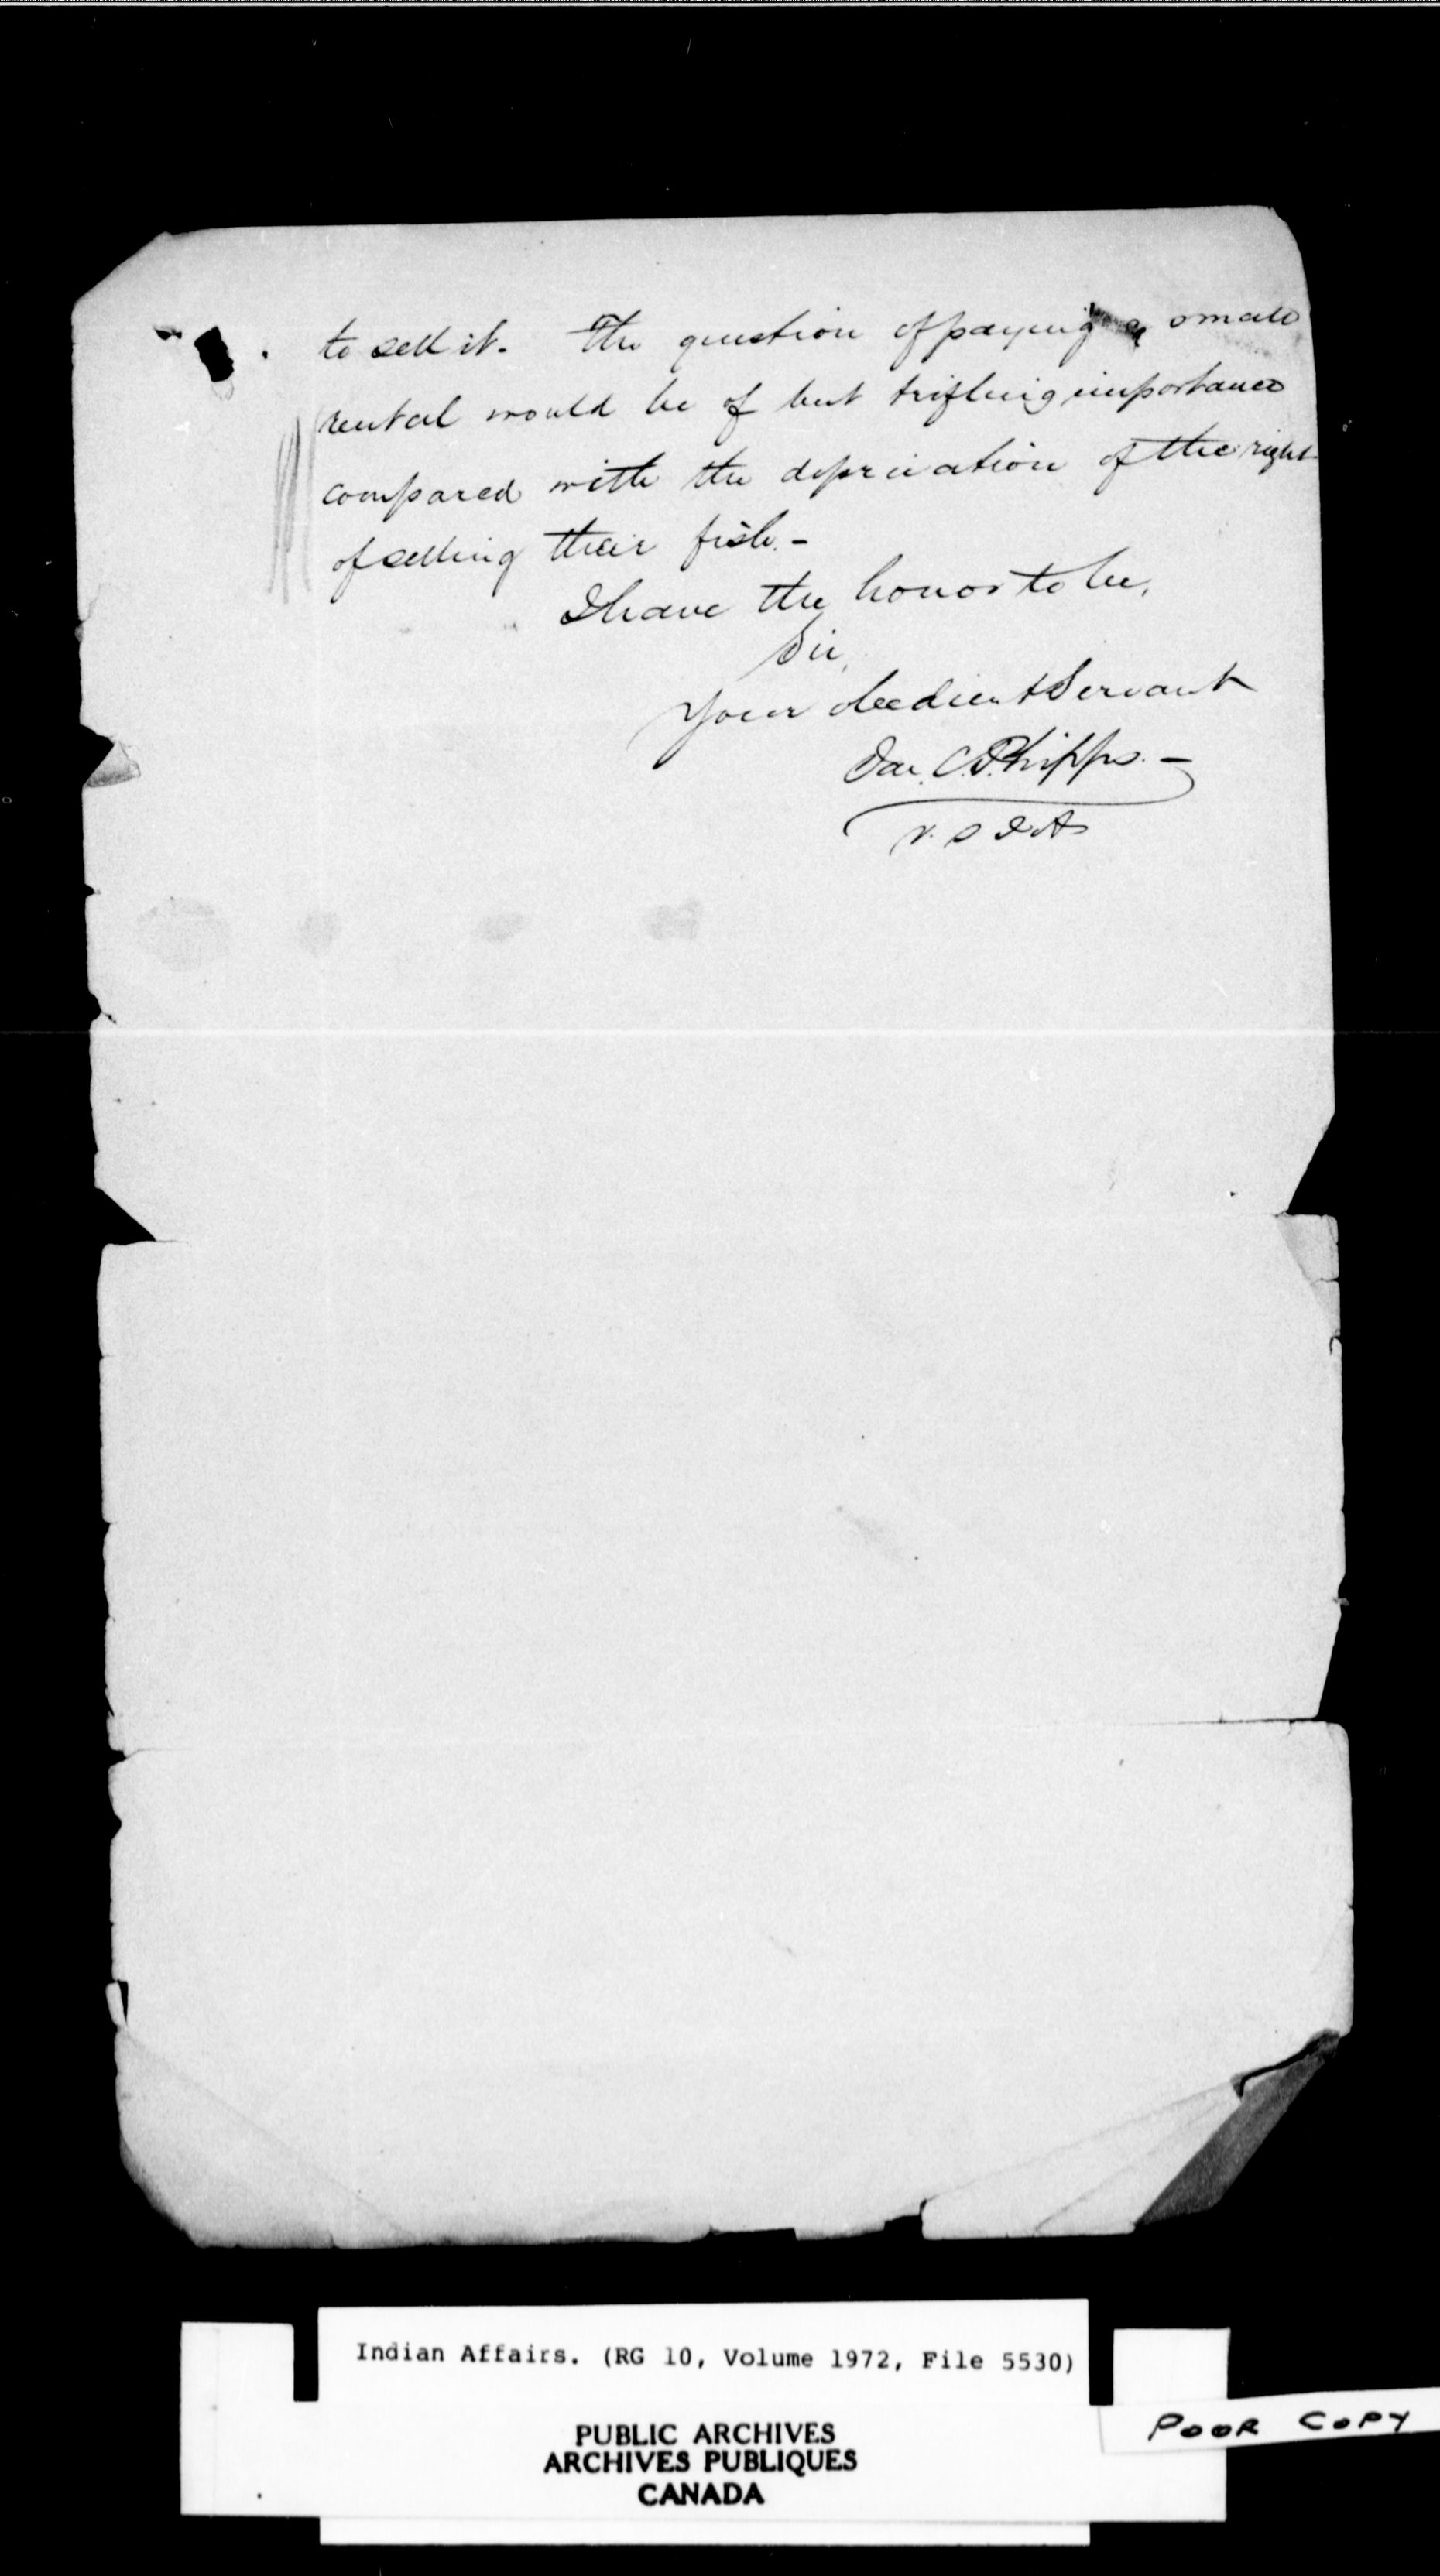 to sell it. The question of paying a small
rental would be of but trifling importance
compared with the deprivation of the right
of selling their fish. -
I have the honor to be,
Sir,
Your obedient Servant
Jas. C. Phipps. -
V. S I A
Indian Affairs. (RG 10, Volume 1972, File 5530)
PUBLIC ARCHIVES
ARCHIVES PUBLIQUES
CANADA
POOR COPY